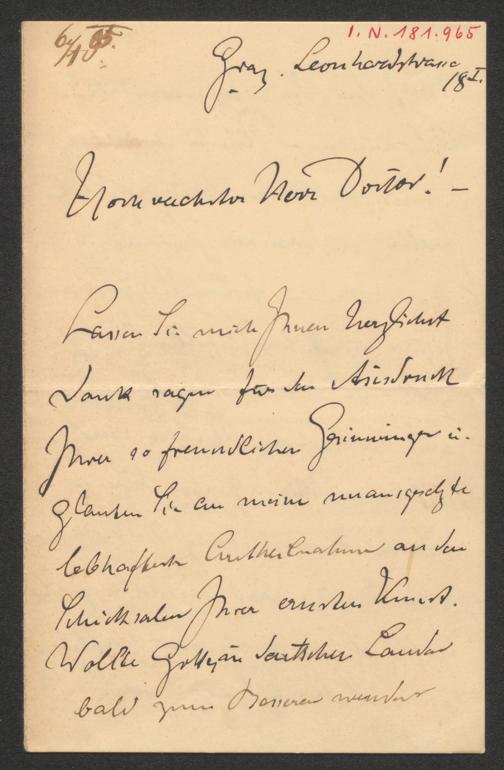 6/10 95.
I.N. 181.965
Graz. Leonhardstrasse
18 I.
Hochverehrter Herr Doctor! –
Lassen Sie mich Ihnen herzlichst
Dank sagen für den Ausdruck
Ihrer so freundlichen Gesinnungen u.
glauben Sie an meine unausgesetzte
lebhafteste Antheilnahme an den
Schicksalen Ihrer ernsten Kunst.
Wolle in deutschen Landen
bald zum Besseren wenden